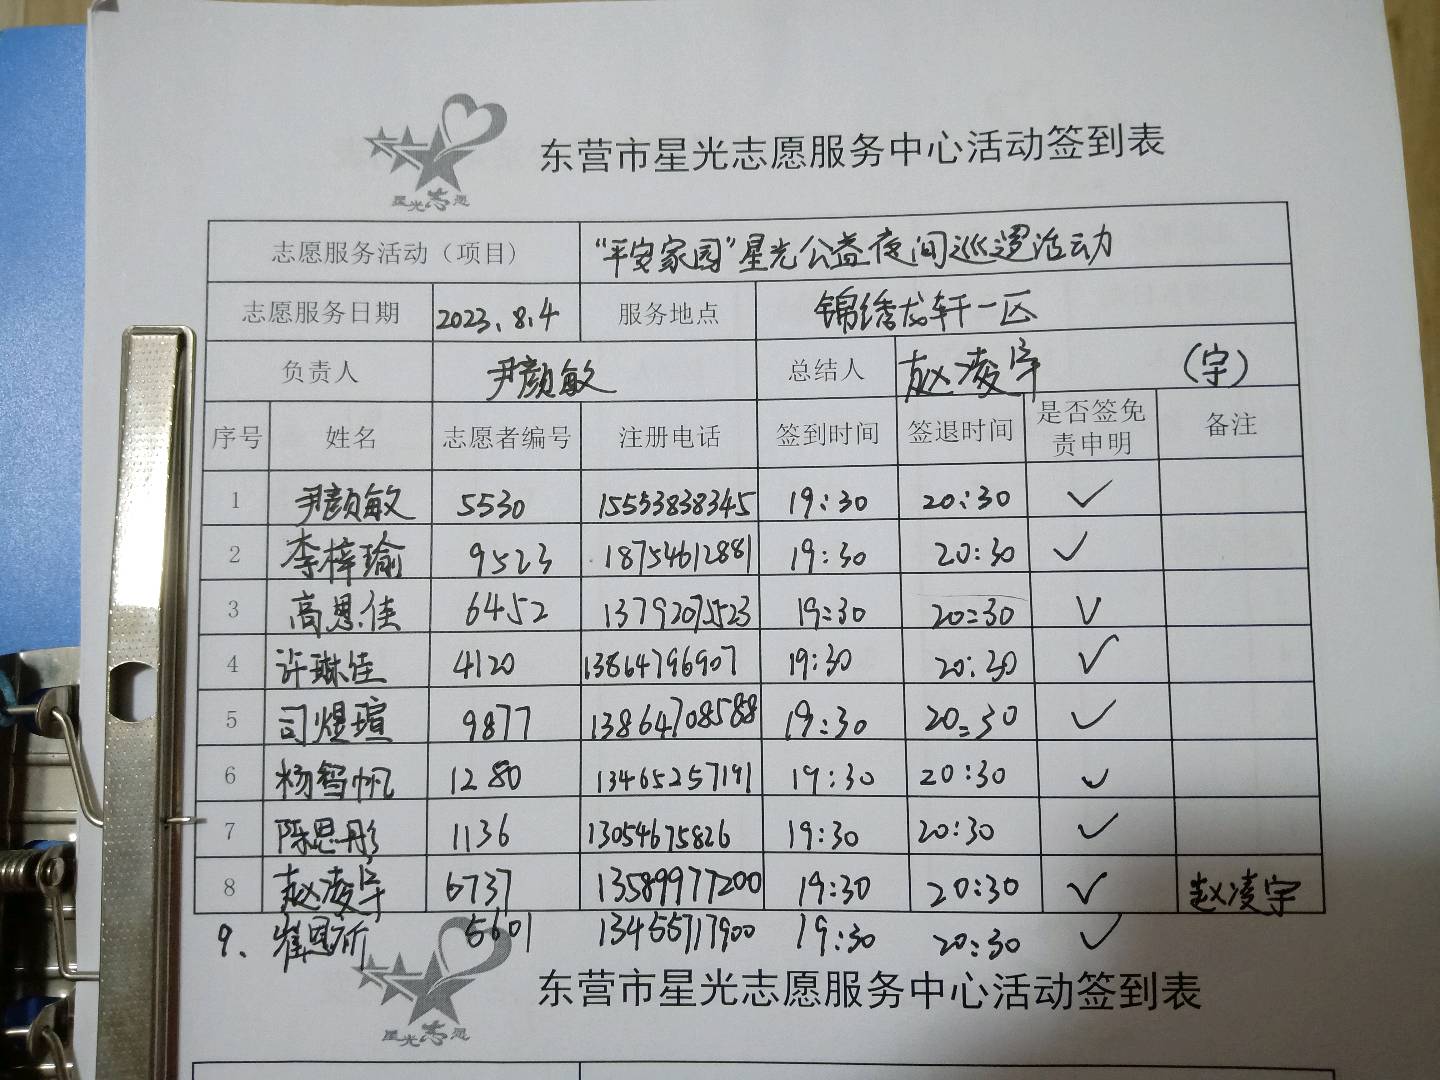 星光志愿
东营市星光志愿服务中心活动签到表
志愿服务活动（项目） “平安家园”星光公益夜间巡逻活动
志愿服务日期 2023.8.4 服务地点 锦绣龙轩一区
负责人 尹颜敏 总结人 赵凌宇 （宇）
序号 姓名 志愿者编号 注册电话 签到时间 签退时间 是否签免责申明 备注
1 尹颜敏 5530 15553838345 19:30 20:30 ✓
2 李梓瑜 9523 18754612881 19:30 20:30 ✓
3 高恩佳 6452 13792075523 19:30 20:30 ✓
4 许琳佳 4120 13864796907 19:30 20:30 ✓
5 司煜瑄 9877 13864708588 19:30 20:30 ✓
6 杨智帆 1280 13465257191 19:30 20:30 ✓
7 陈思彤 1136 13054675826 19:30 20:30 ✓
8 赵凌宇 6737 13589977200 19:30 20:30 ✓ 赵凌宇
9. 崔恩 5601 13455717900 19:30 20:30 ✓
星光志愿
东营市星光志愿服务中心活动签到表